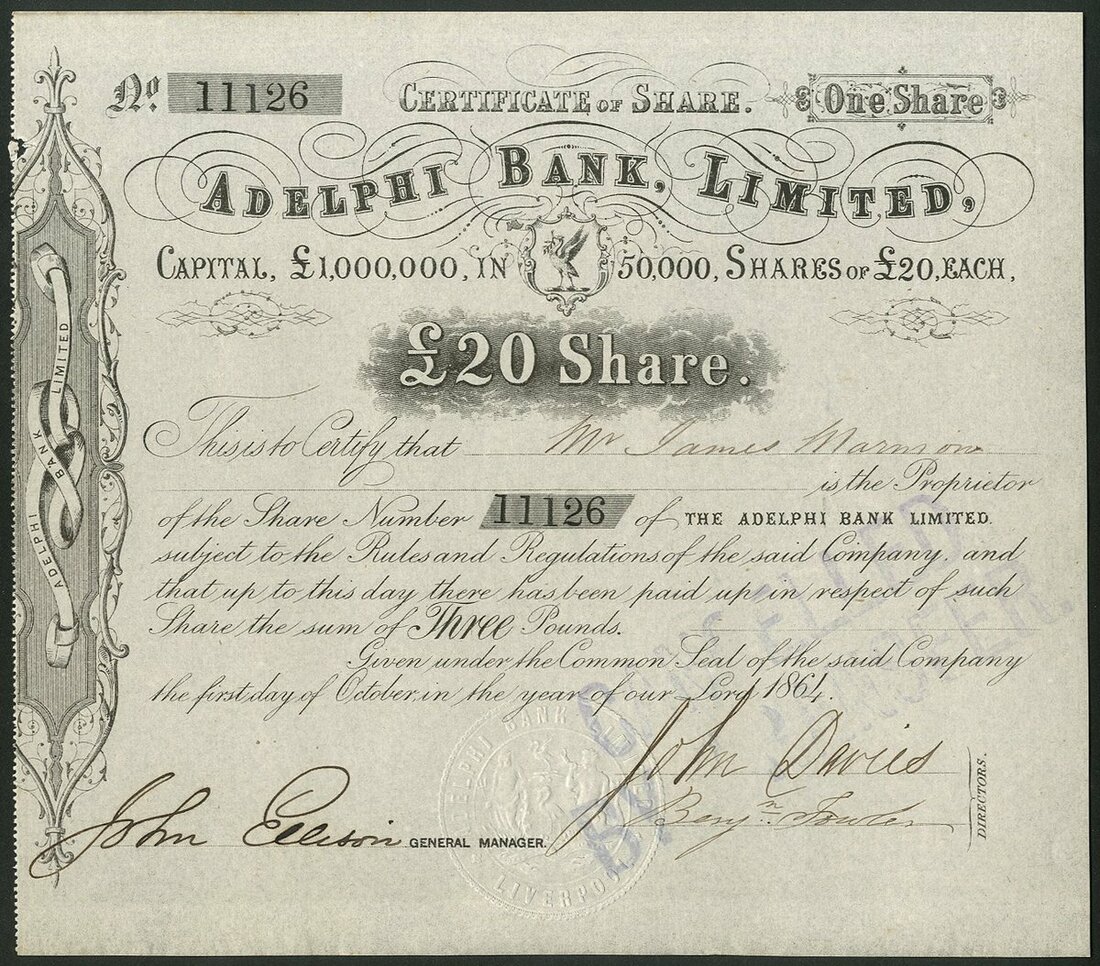 No. 11126 CERTIFICATE OF SHARE. One Share
ADELPHI BANK, LIMITED,
CAPITAL, £1,000,000, IN 50,000, SHARES OF £20, EACH,
£20 Share.
This is to Certify that Mr James Marmion
is the Proprietor
of the Share Number 11126 of THE ADELPHI BANK LIMITED.
subject to the Rules and Regulations of the said Company, and
that up to this day there has been paid up in respect of such
Share the sum of Three Pounds.
Given under the Common Seal of the said Company
the first day of October, in the year of our Lord 1864.
John Davies
Benjn. Fowler
DIRECTORS.
John Ellison GENERAL MANAGER.
ADELPHI BANK LIMITED
ADELPHI BANK
LIVERPOOL
CANCELLED
BY
TRANSFER.